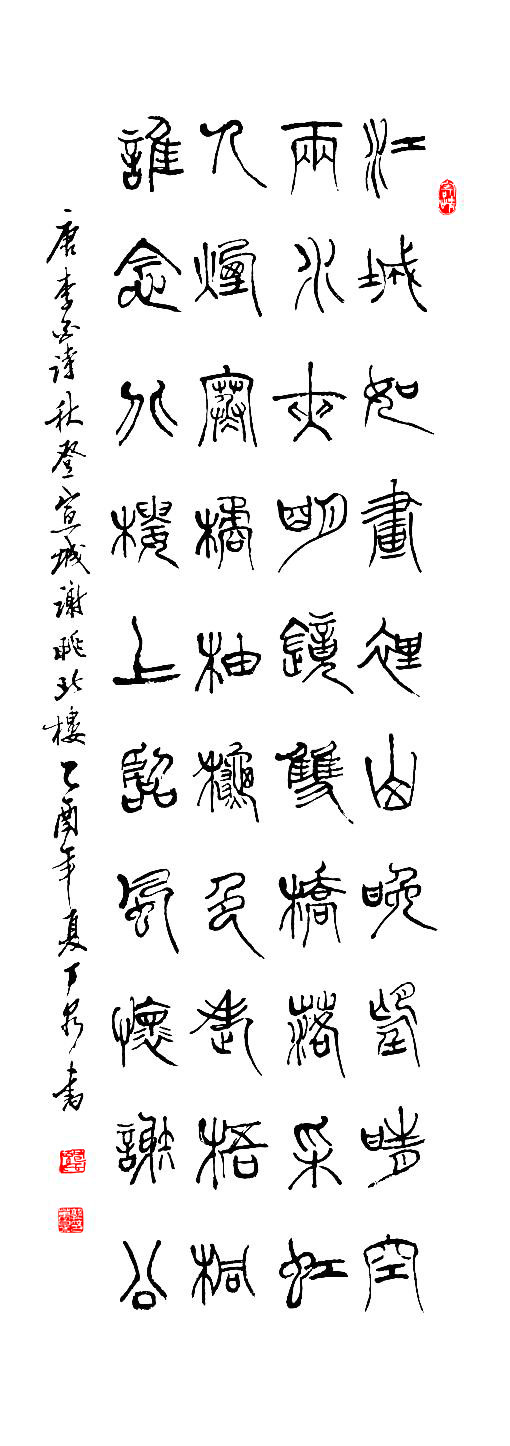 江城如畫裡山晚望晴空
兩水夾明鏡雙橋落采虹
人煙寒橘柚秋色老梧桐
誰念北樓上臨風懷謝公
唐李白诗秋登宣城谢朓北楼乙酉年夏丁泉书